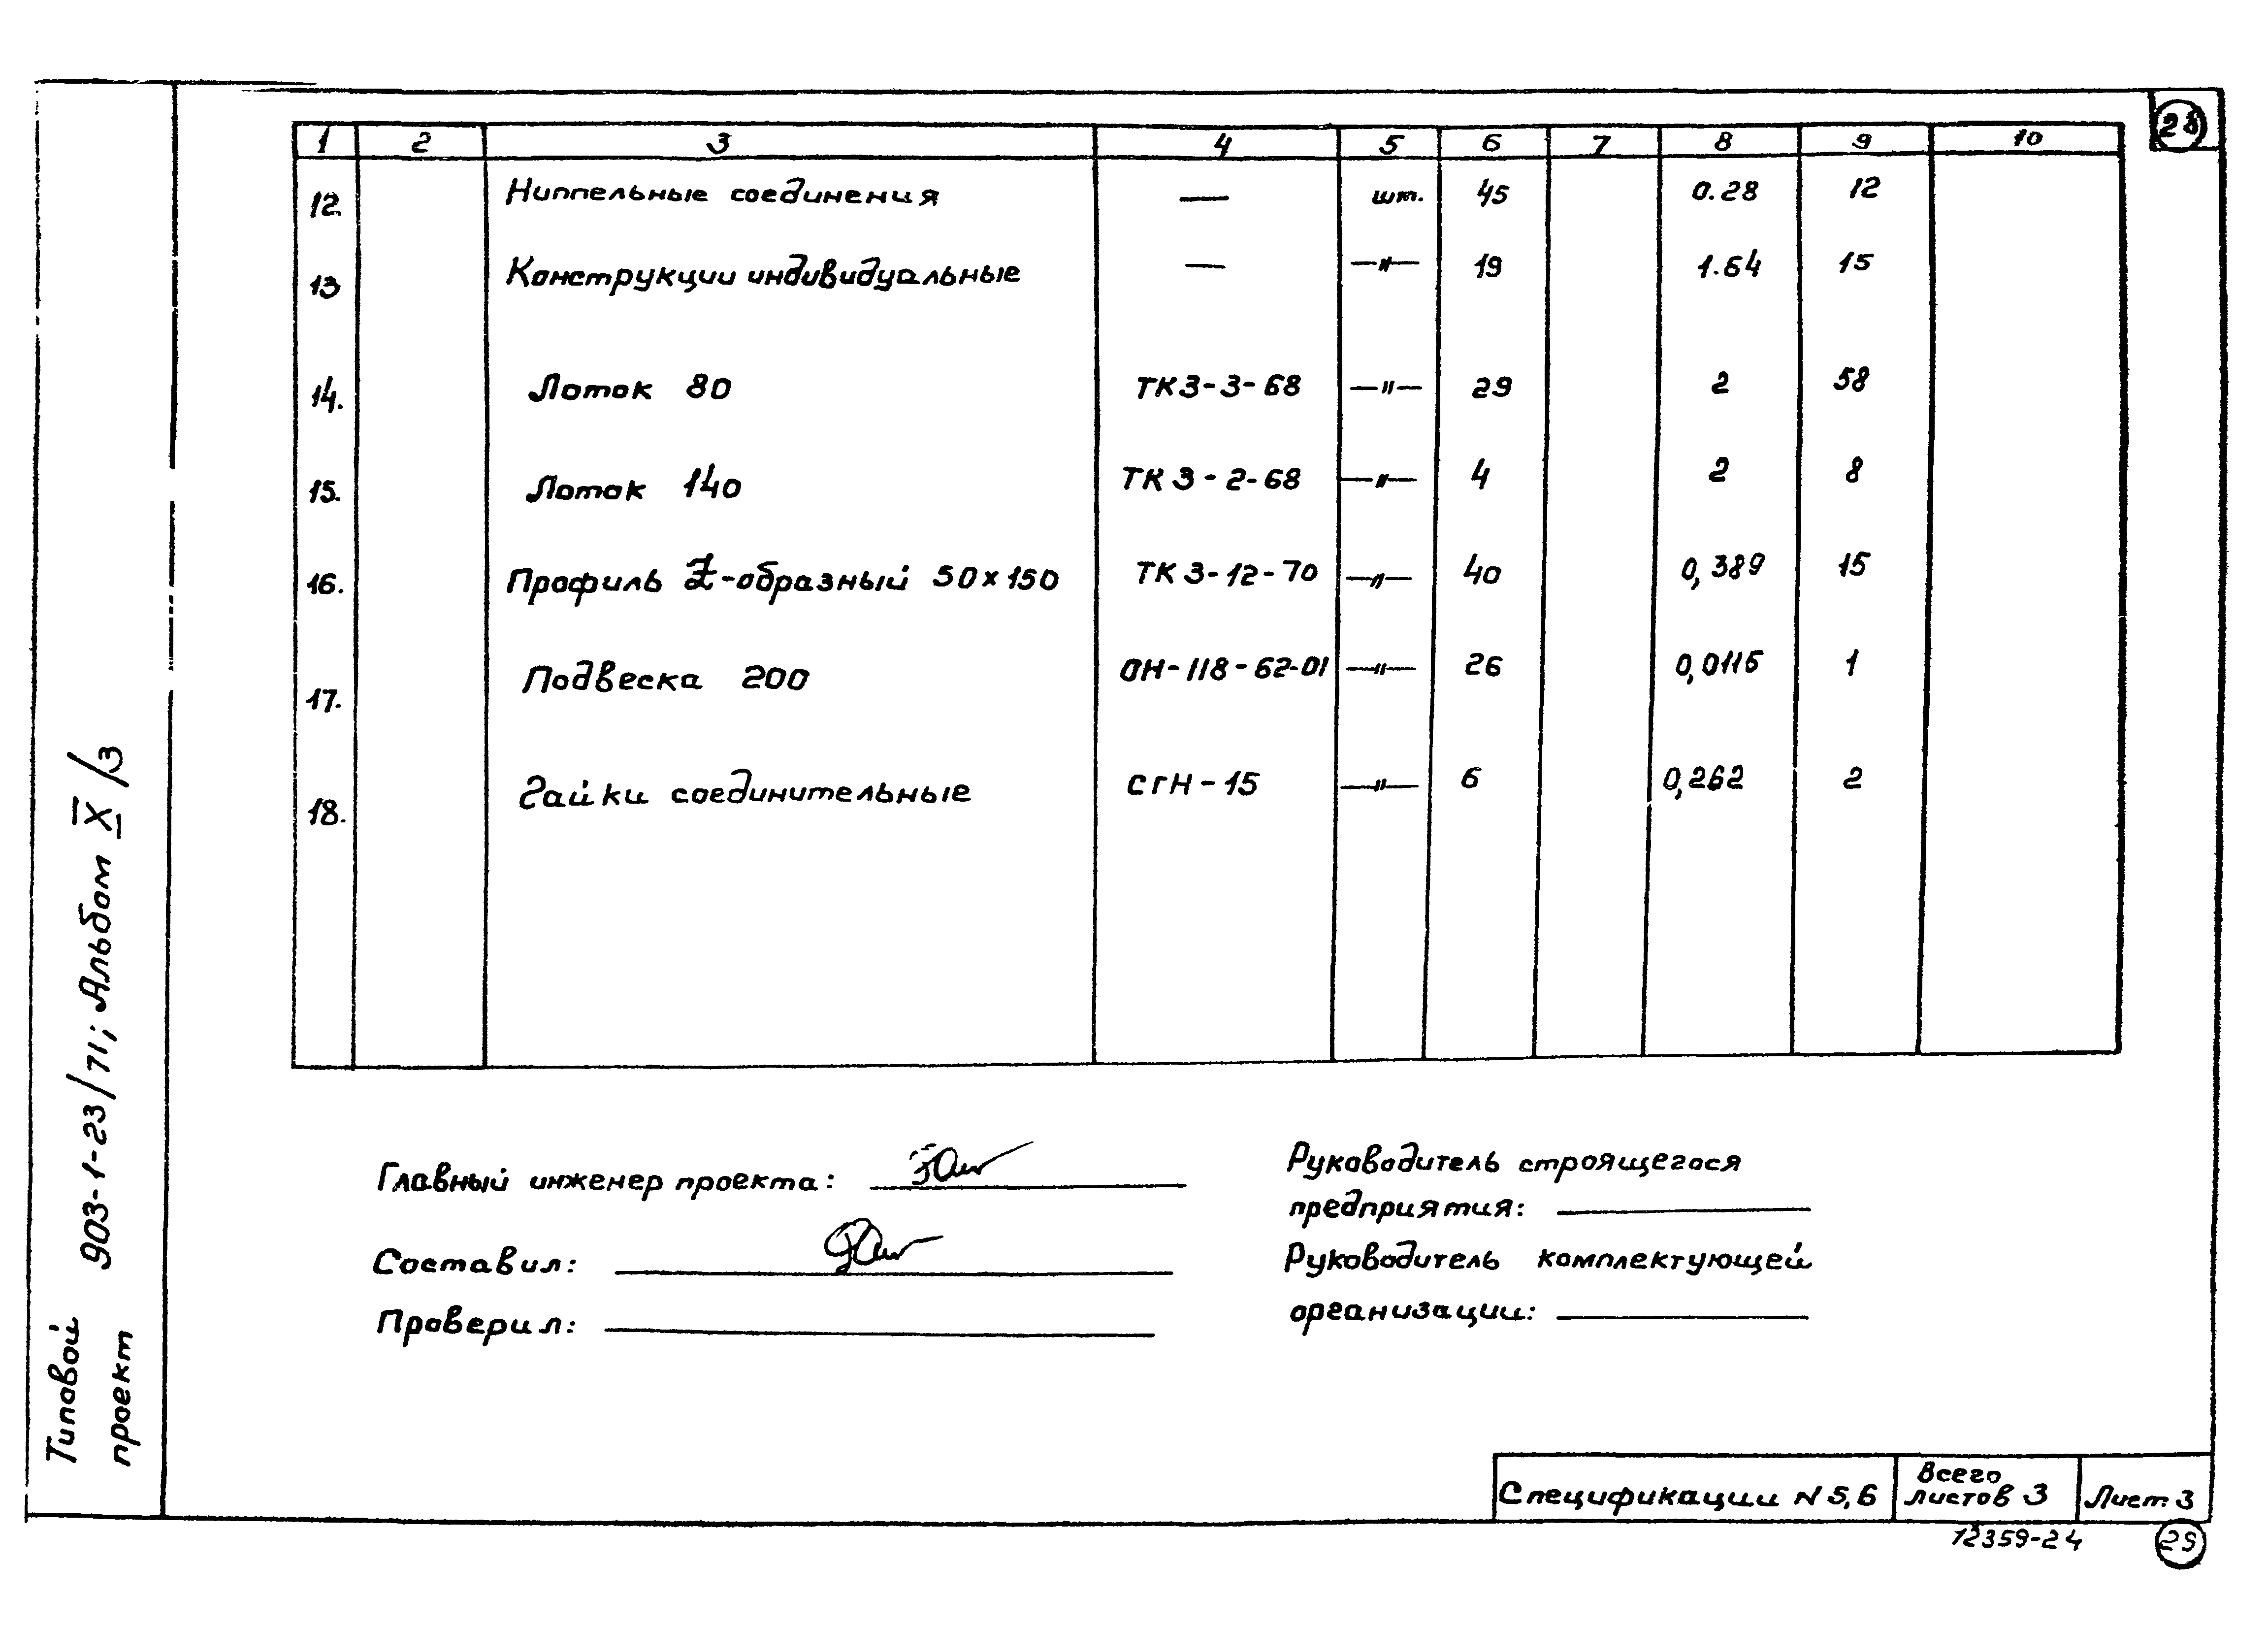 28
1 2 3 4 5 6 7 8 9 10
12. Ниппельные соединения — шт. 45 0.28 12
13 Конструкции индивидуальные — —"— 19 1.64 15
14. Лоток 80 ТКЗ-3-68 —"— 29 2 58
15. Лоток 140 ТКЗ-2-68 —"— 4 2 8
16. Профиль Z-образный 50×150 ТКЗ-12-70 —"— 40 0,389 15
17. Подвеска 200 ОН-118-62-01 —"— 26 0,0115 1
18. Гайки соединительные СГН-15 —"— 6 0,262 2
Типовой
проект
903-1-23/71; Альбом X/3
Главный инженер проекта:
Составил:
Проверил:
Руководитель строящегося
предприятия:
Руководитель комплектующей
организации:
Спецификации N 5,6
Всего
листов 3
Лист 3
12359-24
29